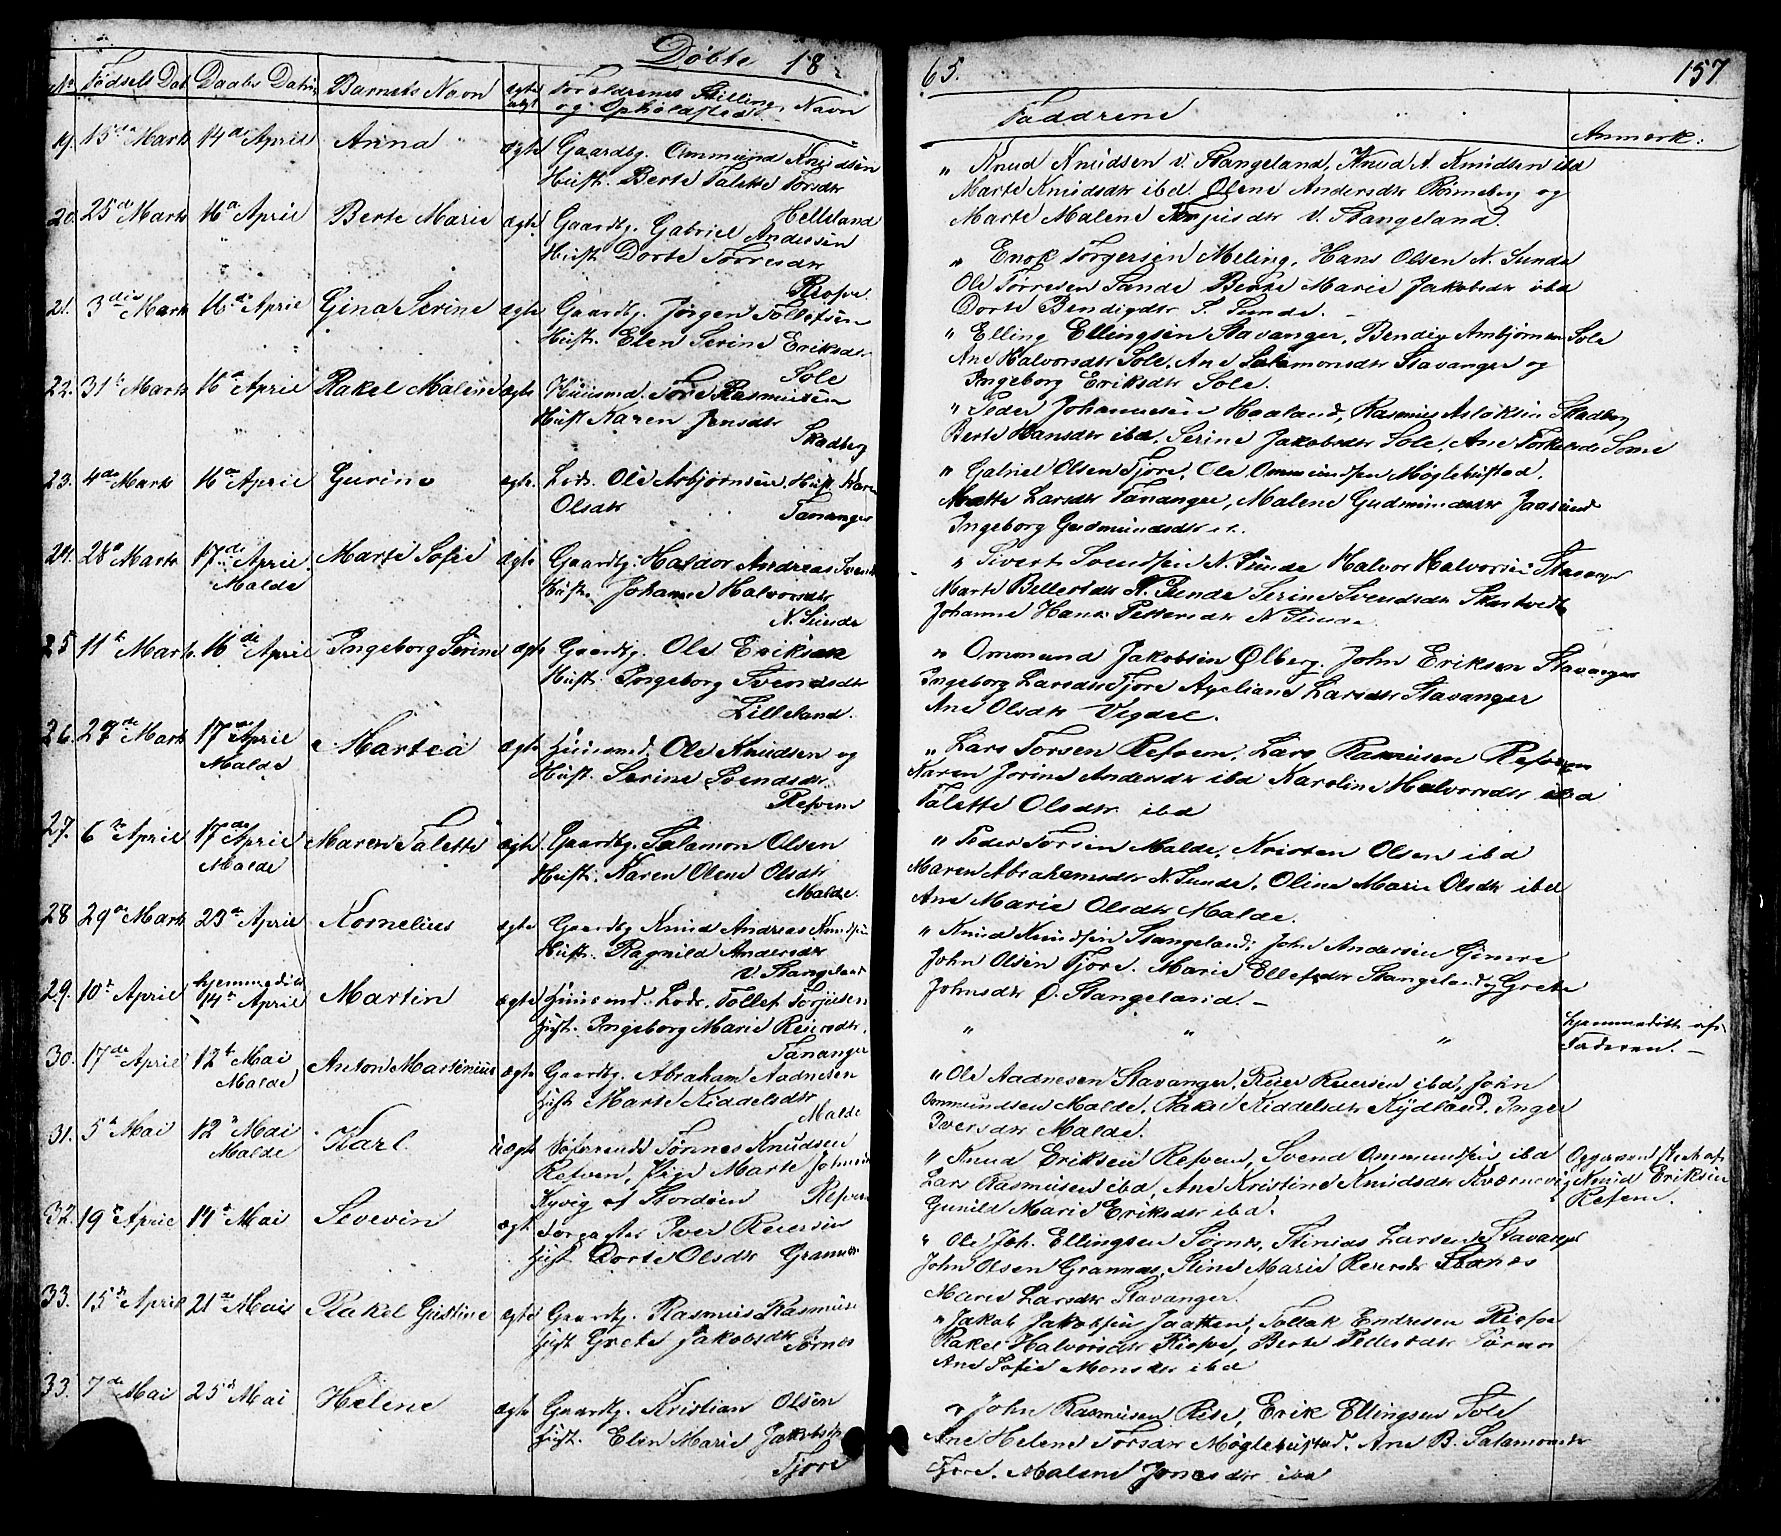 Døbte 18
65.
157
No Fødsels Dat Daabs Datum Barnets Navn ægte uægt Forældrenes Stilling, Navn
og Opholdsted
Faddrene
Anmerk:
19. 15de Marts 14de April Anna ægte Gaardbg. Ommund Knudsen
Hustr. Berte Talette Torsdtr
Helleland
" Knud Knudsen v. Stangeland, Knud A. Knudsen ibd
Marte Knudsdtr ibd Olene Andersdtr Rönneberg og
Marte Malene V. Stangeland.
20. 25de Marts 16de April Berte Marie ægte Gaardbg. Gabriel Andersen
Hustr. Dorte Torresdtr
" Enok Torgersen Meling, Hans Olsen N. Sunde
Ole Torresen Sande Berte Marie Jakobsdtr ibd
Dorte Bendigdtr S. Sunde.
21. 3die Marts 16de April Gina Serine ægte Gaardbg. Jørgen Tollefsen
Hustr. Elen Serine Eriksdtr
Sole
" Elling Ellingsen Stavanger, Bendig Ambjörnsen Sole
Ane Halvorsdtr Sole, Ane Salamonsdtr Stavanger og
Ingeborg Eriksdtr Sole.
22. 31te Marts 16de April Rakel Malene ægte Huusmd. Tore Rasmusen
Hust Karen Jensdtr
Skadberg
" Peder Johannesen Haaland, Rasmus Aslaksen Skadberg
Berte Hansdtr ibd, Serine Jakobsdtr Sole, Ane Torkelsdtr Some
23. 4de Marts 16de April Gurine ægte. Lods. Ole Asbjørnsen, Hust. Karen
Olsdtr Tananger
" Gabriel Olsen Tjore, Ole Ommundsen Møglebustad,
Mette Larsdtr Tananger, Malene Gudmundsdtr Jaasund
Ingeborg Gudmundsdtr
24. 28de Marts 17de April
Malde
Marte Sofie ægte Gaardbg. Haldor Andreas Svends
Hustr. Johanne Halvorsdtr
N. Sunde
" Sivert Svendsen N. Sunde Halvor Halvorsen Stavanger
Marte N. Sunde Serine Svendsdtr
Johanne Hans Pettersdtr N Sunde.
25 11te Marts. 16de April Ingeborg Serine ægte Gaardbg. Ole Eriksen
Hustr. Ingeborg Svendsdtr
Lilleland.
" Ommund Jakobsen Ølberg, John Eriksen Stavanger
Ingeborg Larsdtr Tjore Larsdtr Stavanger
Ane Olsdtr Vigdel.
26. 27de Marts 17de April
Malde
Martea ægte Huusmd. Ole Knudsen og
Hust. Serine Svendsdtr.
Refvem
" Lars Torsen Refvem, Lars Rasmusen Refvem
Karen Jorine Andersdtr ibd Karoline Halvorsdtr ibd
Talette Olsdtr ibd
27. 6te April 17de April
Malde
Maren Talette ægte. Gaardbg. Salamon Olsen
Hustr. Karen Olene Olsdtr
Malde.
" Peder Torsen Malde, Kristen Olsen ibd
Maren Abrahamsdtr N. Sunde, Oline Marie Olsdtr ibd
Ane Marie Olsdtr Malde.
28 29de Marts 23de April Kornelius ægte Gaardbg Knud Andreas Knudsen
Hustr. Ragnild Andersdtr
V Stangeland
" Knud Knudsen Stangeland, John Andersen Gimre
John Olsen Tjore. Marie Ellefsdtr Stangeland og Grete
Johnsdtr Ø. Stangeland.
29. 10de April hjemmedøbt
14de April
Martin ægte Huusmd. Lods. Tollef Torjusen
Hust. Ingeborg Marie Reiersdtr.
Tananger
" " "
hjemmedöbt af
Faderen.
30. 17de April 12te Mai
Malde
Anton Martinius ægte Gaardbg. Abraham Aadnesen
Hust Marte Kiddelsdtr
Malde
" Ole Aadnesen Stavanger, Reier Reiersen ibd, John
Ommundsen Malde, Rakel Kiddelsdtr Kydland, Inger
Iversdtr Malde.
31. 5te Mai 12te Mai
Malde
Karl uægte Søfarende Tönnes Knudsen
Refvem, Pige Marte Johnsdtr
Kyvig af Stordöen Refvem
" Knud Eriksen Refvem, Svend Ommundsen ibd
Lars Rasmusen ibd, Ane Kristine Knudsdtr Kværnevig
Gunild Marie Eriksdtr ibd.
Opgivent skert af
Knud Eriksen
Refvem.
32. 19de April 14de Mai Severin ægte Iver Reiersen
Hust Dorte Olsdtr Grannes
" Ole Joh. Ellingsen Sörnes, Stinius Larsen Stavanger
John Olsen Grannes, Stine Marie Reiersdtr
Maren Larsdtr Stavanger.
33. 15de April 21de Mai Rakel Gustine ægte Gaardbg. Rasmus Rasmusen
Hust Grete Jakobsdtr
Sørnes
" Jakob Jakobsen Jaatten, Tollak Endresen
Rakel Halvorsdtr Berte Pedersdtr Sörnes
Ane Sofie Monsdtr ibd
33. 7de Mai 25de Mai Helene ægte Gaardbg. Kristian Olsen
Hust. Elen Marie Jakobsdtr
Tjore
" John Rasmusen Rise, Erik Ellingsen Sole
Ane Helene Torsdtr Møglebustad, Ane B. Salamonsdtr
Tjore. Malene Jonasdtr ibd